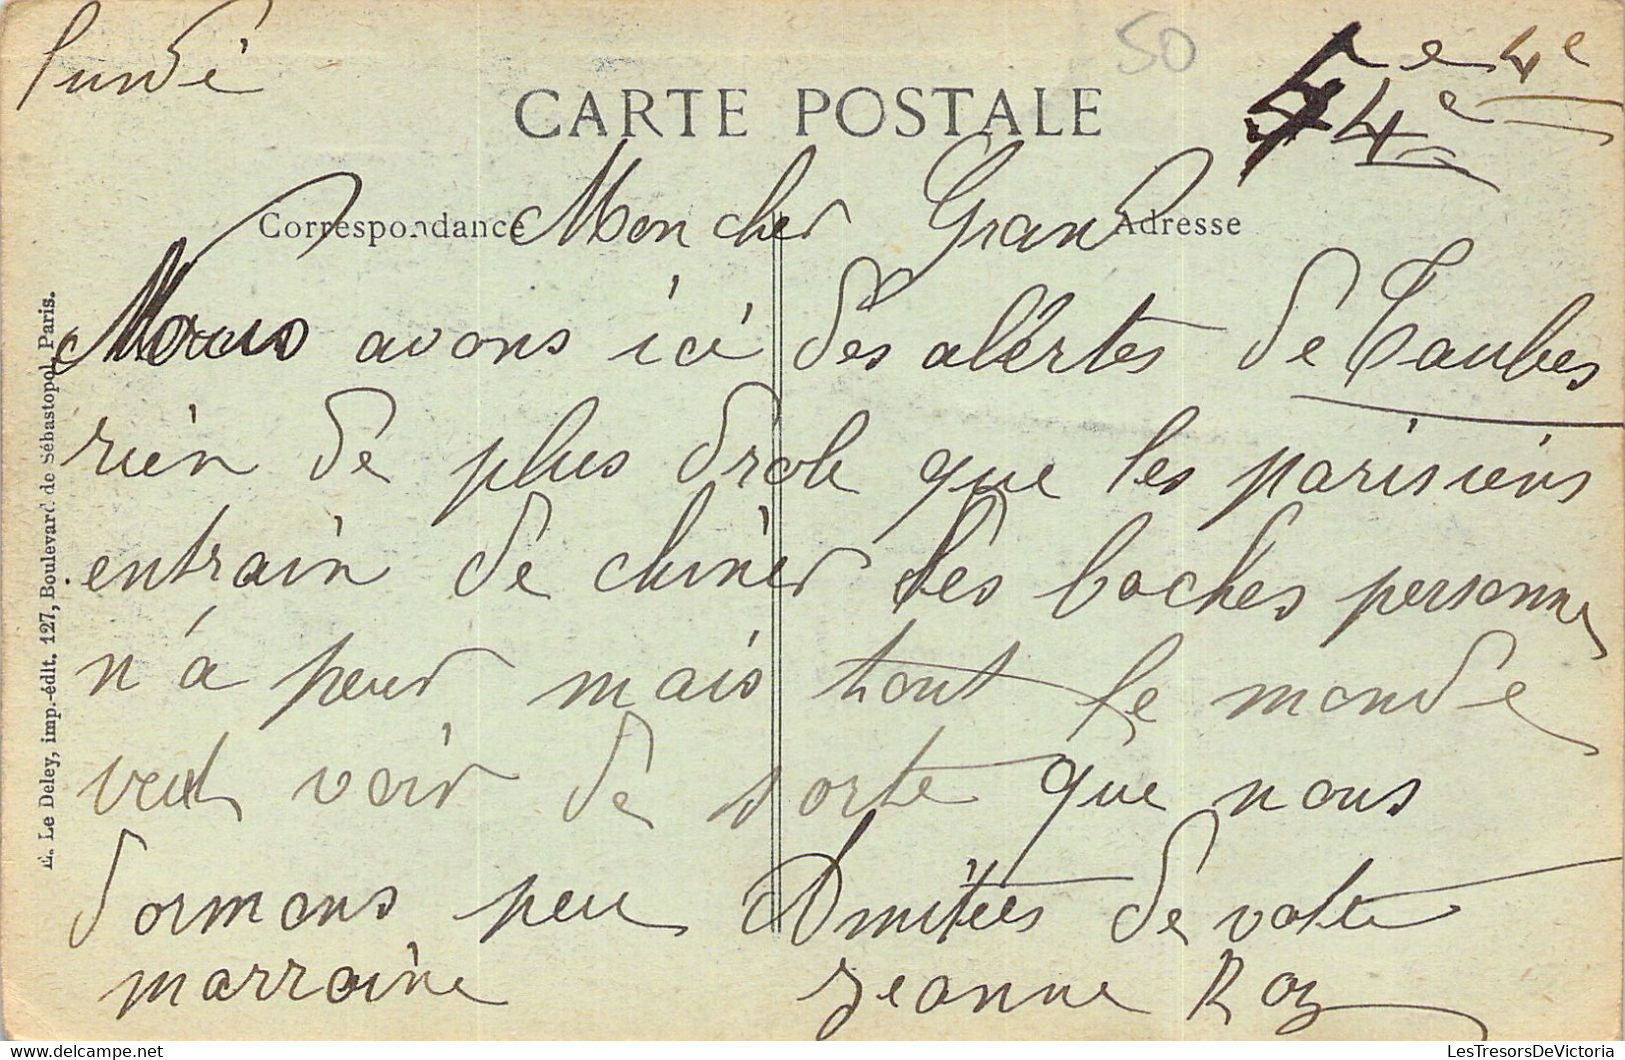 Lundi
50
4e
44e
CARTE POSTALE
Correspondance
Adresse
Mon cher Grand
Nous avons ici des alertes de Taubes
rien de plus drole que les parisiens
entrain de chiner les boches personne
n'a peur mais tout le monde
veut voir de sorte que nous
dormons peu Amitiées de votre
marraine Jeanne Roz
E. Le Deley, imp.-édit. 127, Boulevard de Sébastopol, Paris.
LesTresorsDeVictoria
delcampe.net